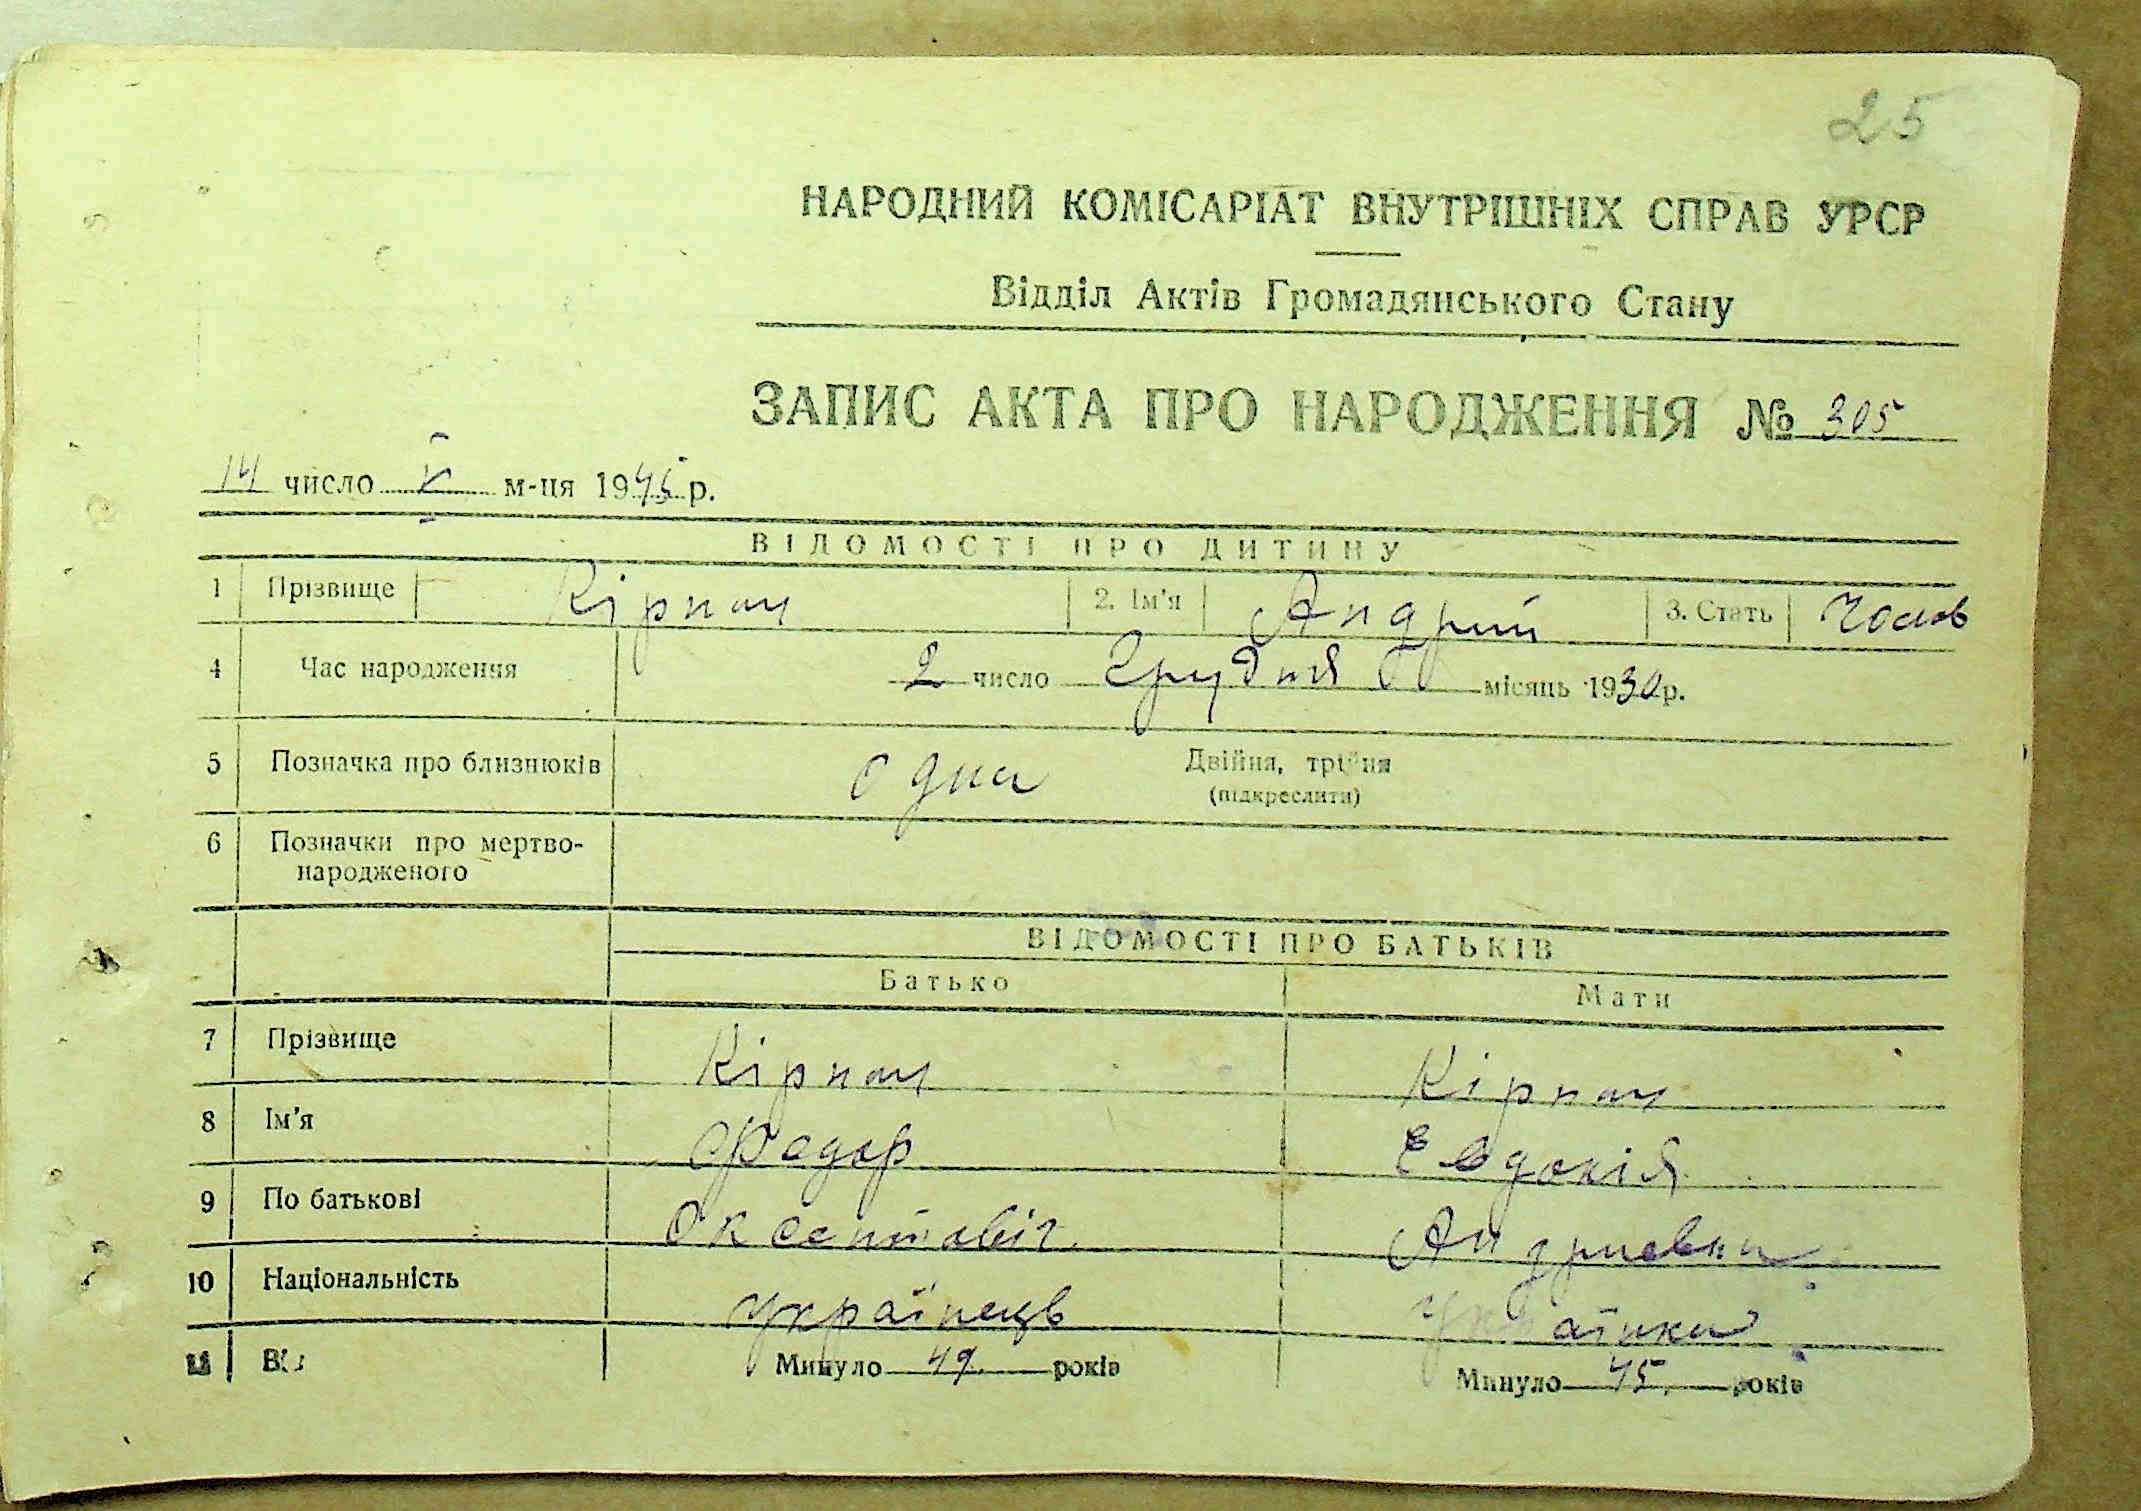 25
НАРОДНИЙ КОМІСАРІАТ ВНУТРІШНІХ СПРАВ УРСР
Відділ Актів Громадянського Стану
ЗАПИС АКТА ПРО НАРОДЖЕННЯ № 305
14 число V м-ця 1945 р.
ВІДОМОСТІ ПРО ДИТИНУ
1 Прізвище Кірпач 2. Ім'я Андрий 3. Стать Чолов
4 Час народження 2 число Грудня місяць 1930 р.
5 Позначка про близнюків одна Двійня, трійня
(підкреслити)
6 Позначки про мертво-
народженого
ВІДОМОСТІ ПРО БАТЬКІВ
Батько Мати
7 Прізвище Кірпач Кірпач
8 Ім'я Федор Евдокія
9 По батькові Оксентовіч Андриевна
10 Національність Українець Українка
11 Минуло 49 років Минуло 45 років